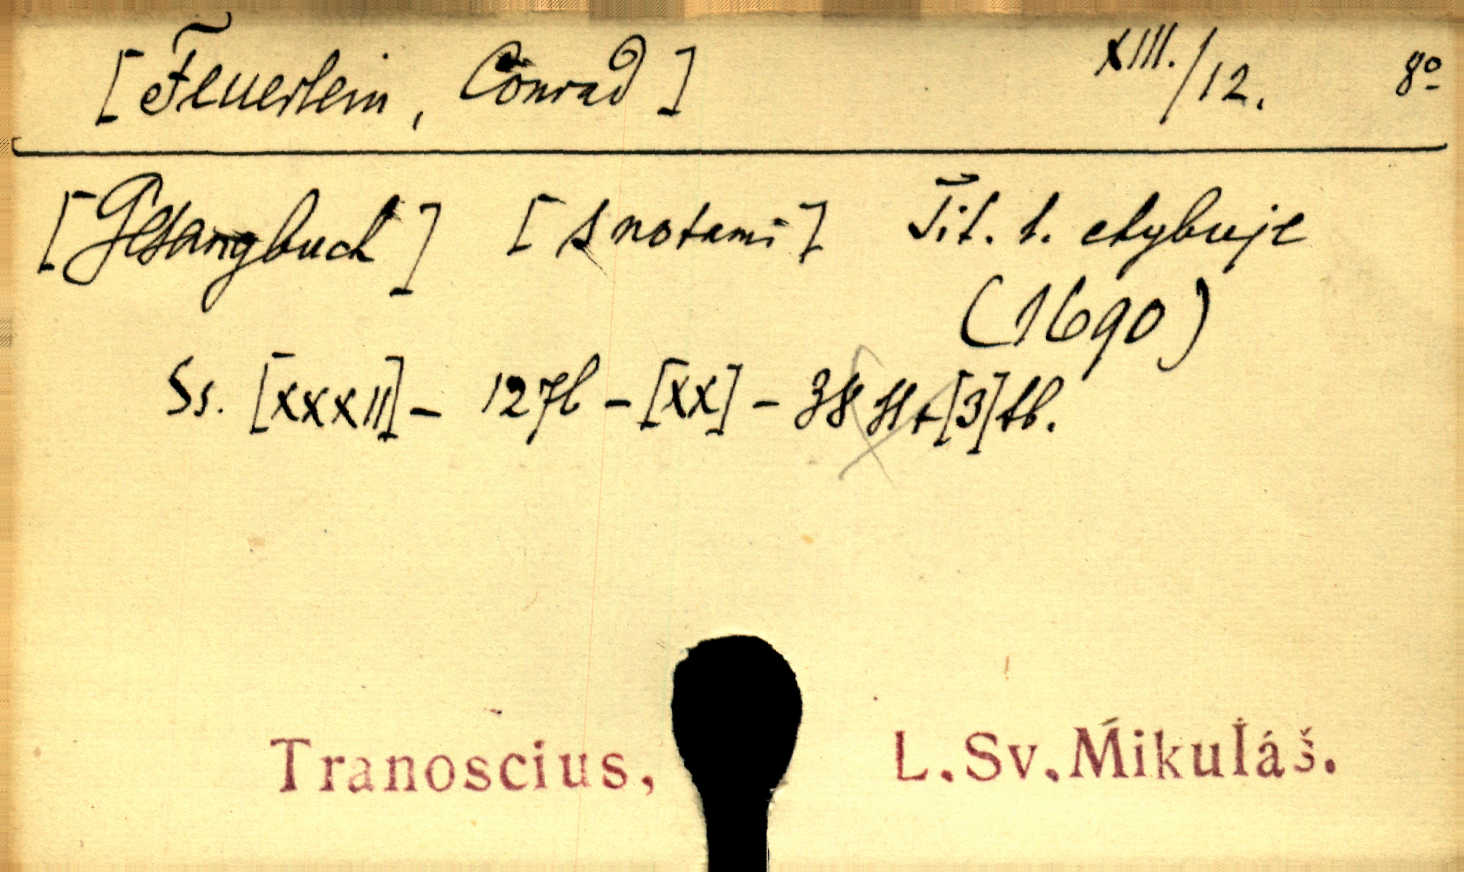 [Feuerlein, Conrad] XIII./12. 8°
[Gesangbuch] [s notami] Tit. l. chybuje
(1690)
Ss. [XXXII] - 1276 - [XX] - 38 + [3] tb.
Tranoscius, L.Sv.Mikuláš.